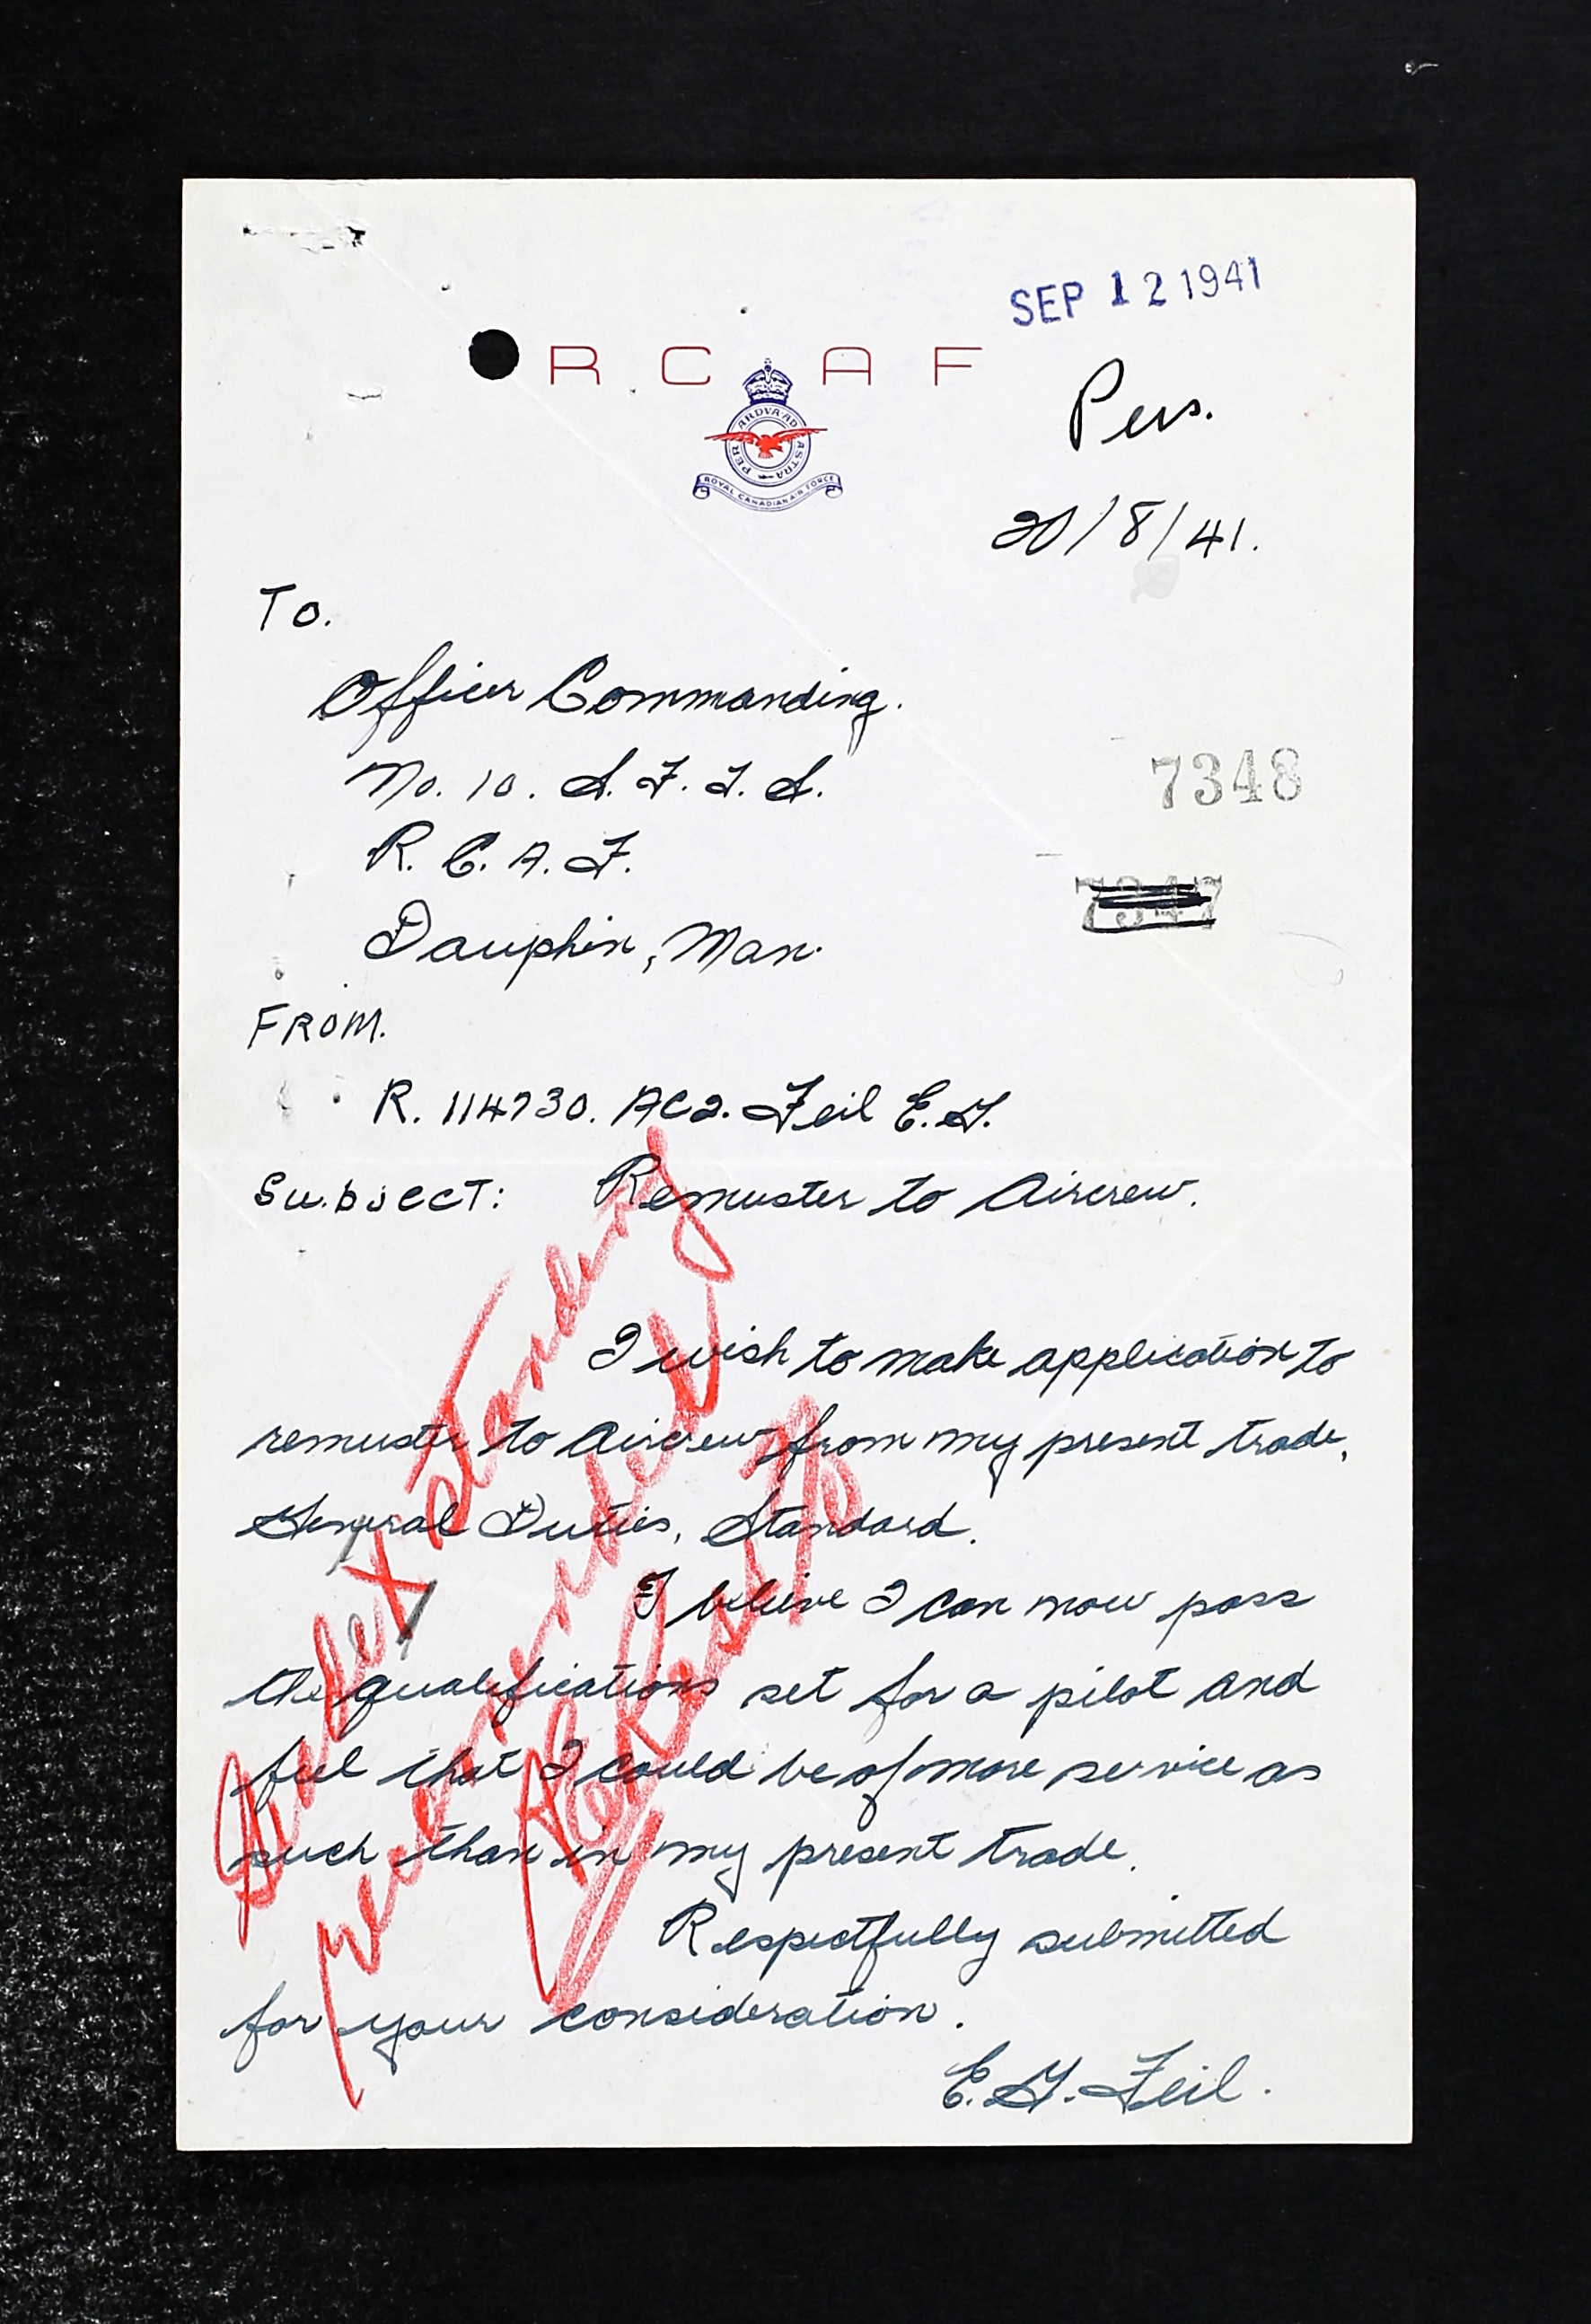 SEP 12 1941
R C A F
PER ARDVA AD ASTRA
ROYAL CANADIAN AIR FORCE
Pers.
20/8/41.
To.
Officer Commanding.
No. 10. S. F. T. S.
7348
R. C. A. F.
7347
Dauphin, Man.
FROM.
R. 114730. AC2. Feil E. G.
SUBJECT: Remuster to Aircrew.
I wish to make application to
remuster to Aircrew from my present trade,
General Duties, Standard.
I believe I can now pass
the qualifications set for a pilot and
feel that I could be of more service as
such than in my present trade.
Respectfully submitted
for your consideration.
E. G. Feil.
standing